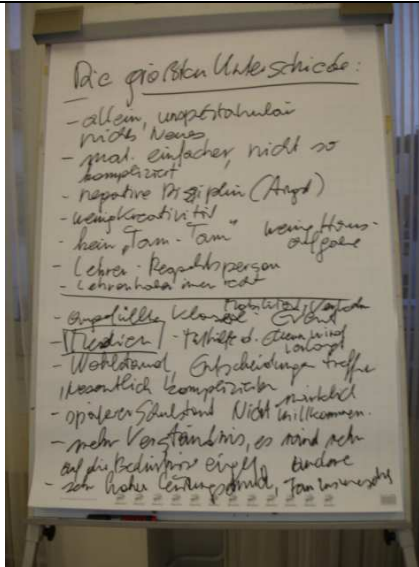 Die größten Unterschiede:
- allein, unspektakulär
nichts Neues
- mat. einfacher, nicht so
kompliziert
- negative Disziplin (Angst)
- wenig Kreativität
- kein „Tam-Tam" wenig Haus-
aufgabe
- Lehrer - Respektsperson
- Lehrer haben immer recht
- überfüllte Klassen Event
- Medien - Mithilfe d. Eltern wird
verlangt
- Wohlstand, Entscheidungen treffen
wesentlich komplizierter
- späterer Schulstand Nicht wirklich
willkommen.
- mehr Verständnis, es wird sehr
auf die Bedürfnisse andere
- sehr hoher Leistungs